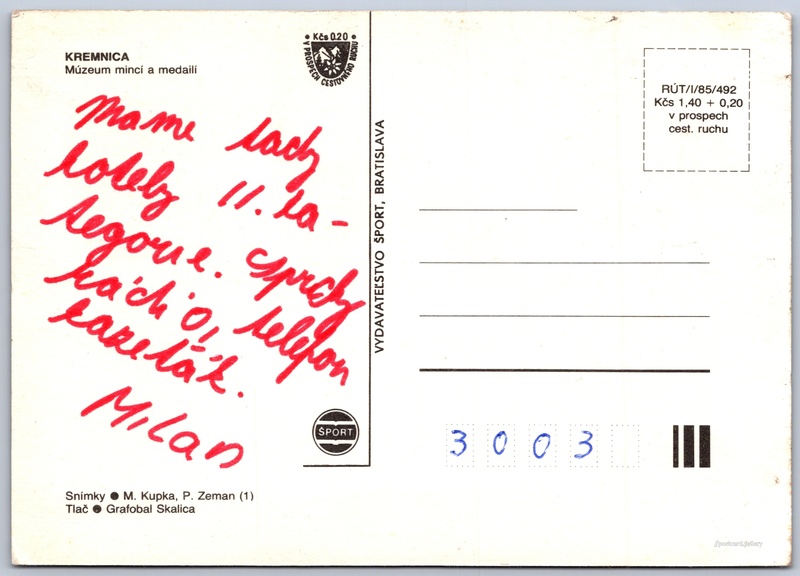 KREMNICA
Múzeum mincí a medailí
Kčs 0.20
V PROSPECH CESTOVNÉHO RUCHU
RÚT/I/85/492
Kčs 1,40 + 0,20
v prospech
cest. ruchu
mame tady
hotely II. ka-
tegorie. sprchy
rádio, telefon
kazeťák.
Milan
VYDAVATEĽSTVO ŠPORT, BRATISLAVA
ŠPORT
3003
Snímky ● M. Kupka, P. Zeman (1)
Tlač ● Grafobal Skalica